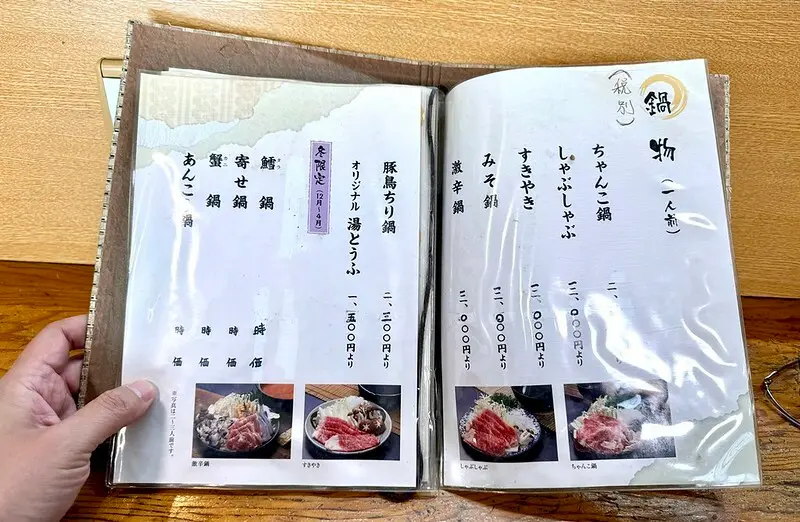 鍋物(一人前)
(税別)
ちゃんこ鍋 二、
しゃぶしゃぶ 〇〇〇円より
すきやき 〇〇〇円より
みそ鍋 〇〇〇円より
激辛鍋 〇〇〇円より
しゃぶしゃぶ
ちゃんこ鍋
豚鳥ちり鍋 二、三〇〇円より
オリジナル 湯とうふ 一、五〇〇円より
冬限定(12月~4月)
鱈鍋 時価
寄せ鍋 時価
蟹鍋 時価
あんこ 鍋 時価
※写真は二~三人前です。
激辛鍋
すきやき